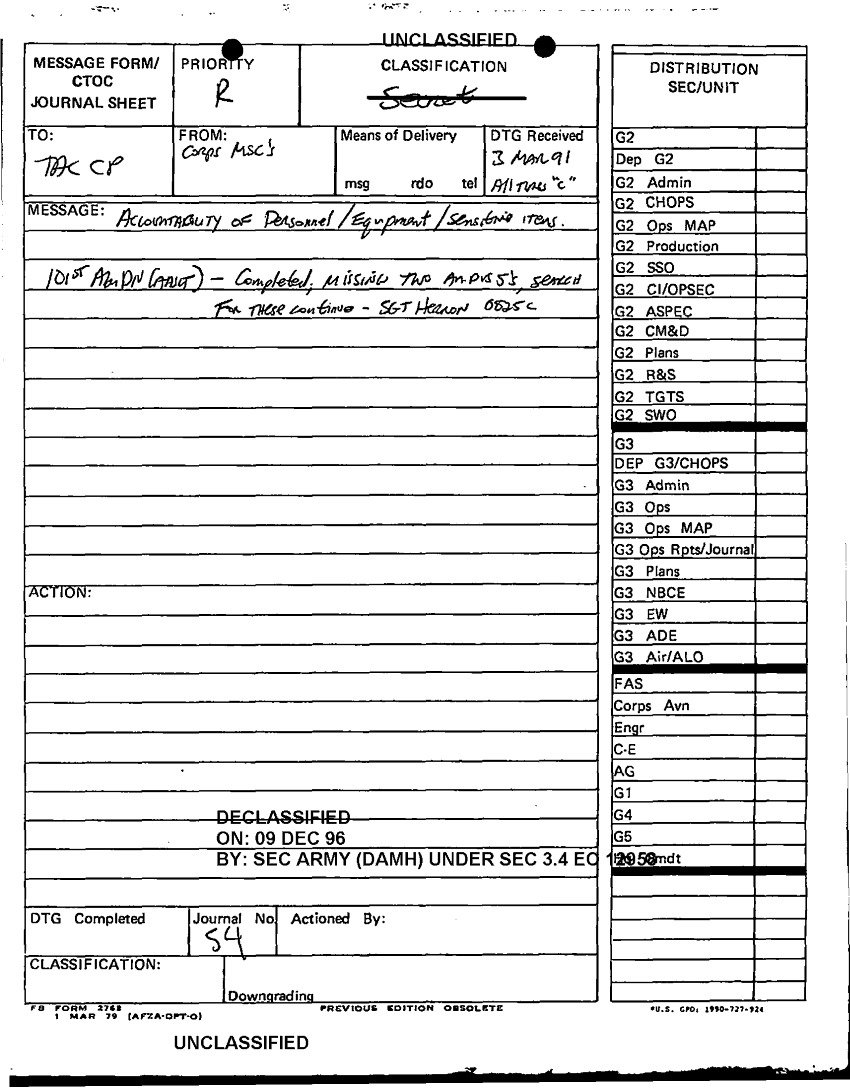 UNCLASSIFIED
MESSAGE FORM/
CTOC
JOURNAL SHEET
PRIORITY
R
CLASSIFICATION
Secret
TO:
TAC CP
FROM:
Corps MSC's
Means of Delivery
msg rdo tel
DTG Received
3 MAR 91
All times "C"
MESSAGE: Accountability of Personnel / Equipment / Sensitive items.
101st Abn DIV (AASLT) – Completed, Missing two AN-PVS 5's, search
For these continue – SGT Hernon 0825C
ACTION:
DECLASSIFIED
ON: 09 DEC 96
BY: SEC ARMY (DAMH) UNDER SEC 3.4 EO 12958
DTG Completed
Journal No.
54
Actioned By:
CLASSIFICATION:
Downgrading
FB FORM 2768
1 MAR 79 (AFZA-DPT-O)
PREVIOUS EDITION OBSOLETE
UNCLASSIFIED
DISTRIBUTION
SEC/UNIT
G2
Dep G2
G2 Admin
G2 CHOPS
G2 Ops MAP
G2 Production
G2 SSO
G2 CI/OPSEC
G2 ASPEC
G2 CM&D
G2 Plans
G2 R&S
G2 TGTS
G2 SWO
G3
DEP G3/CHOPS
G3 Admin
G3 Ops
G3 Ops MAP
G3 Ops Rpts/Journal
G3 Plans
G3 NBCE
G3 EW
G3 ADE
G3 Air/ALO
FAS
Corps Avn
Engr
C-E
AG
G1
G4
G5
*U.S. GPO: 1990-727-924